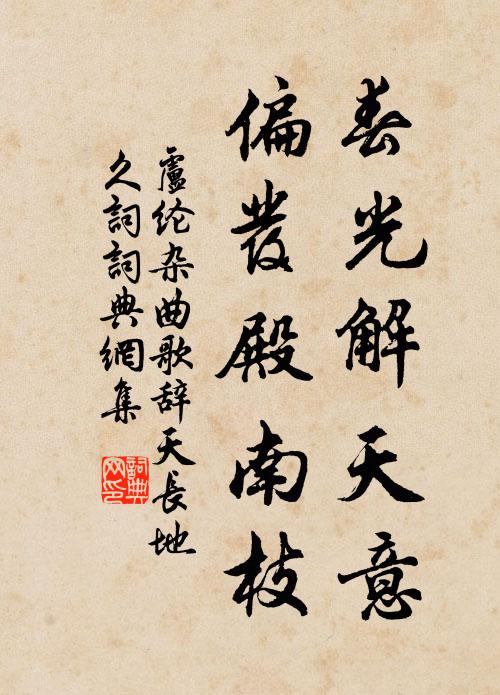 春光解天意
偏發殿南枝
盧纶杂曲歌辞天長地
久詞詞典網集
詞典
网印